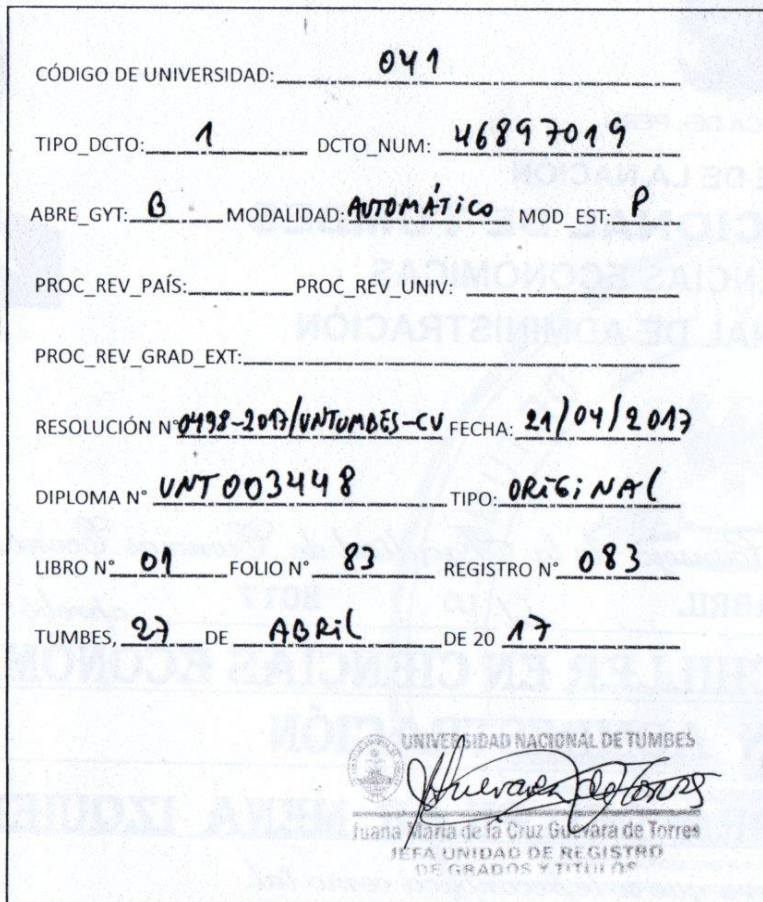 CÓDIGO DE UNIVERSIDAD: 041
TIPO_DCTO: 1 DCTO_NUM: 46897019
ABRE_GYT: B MODALIDAD: AUTOMÁTICO MOD_EST: P
PROC_REV_PAÍS: PROC_REV_UNIV:
PROC_REV_GRAD_EXT:
RESOLUCIÓN N° 0498-2017/UNTUMBES-CU FECHA: 21/04/2017
DIPLOMA N° UNT003448 TIPO: ORIGINAL
LIBRO N° 01 FOLIO N° 83 REGISTRO N° 083
TUMBES, 27 DE ABRIL DE 20 17
UNIVERSIDAD NACIONAL DE TUMBES
Juana María de la Cruz Guevara de Torres
JEFA UNIDAD DE REGISTRO
DE GRADOS Y TITULOS